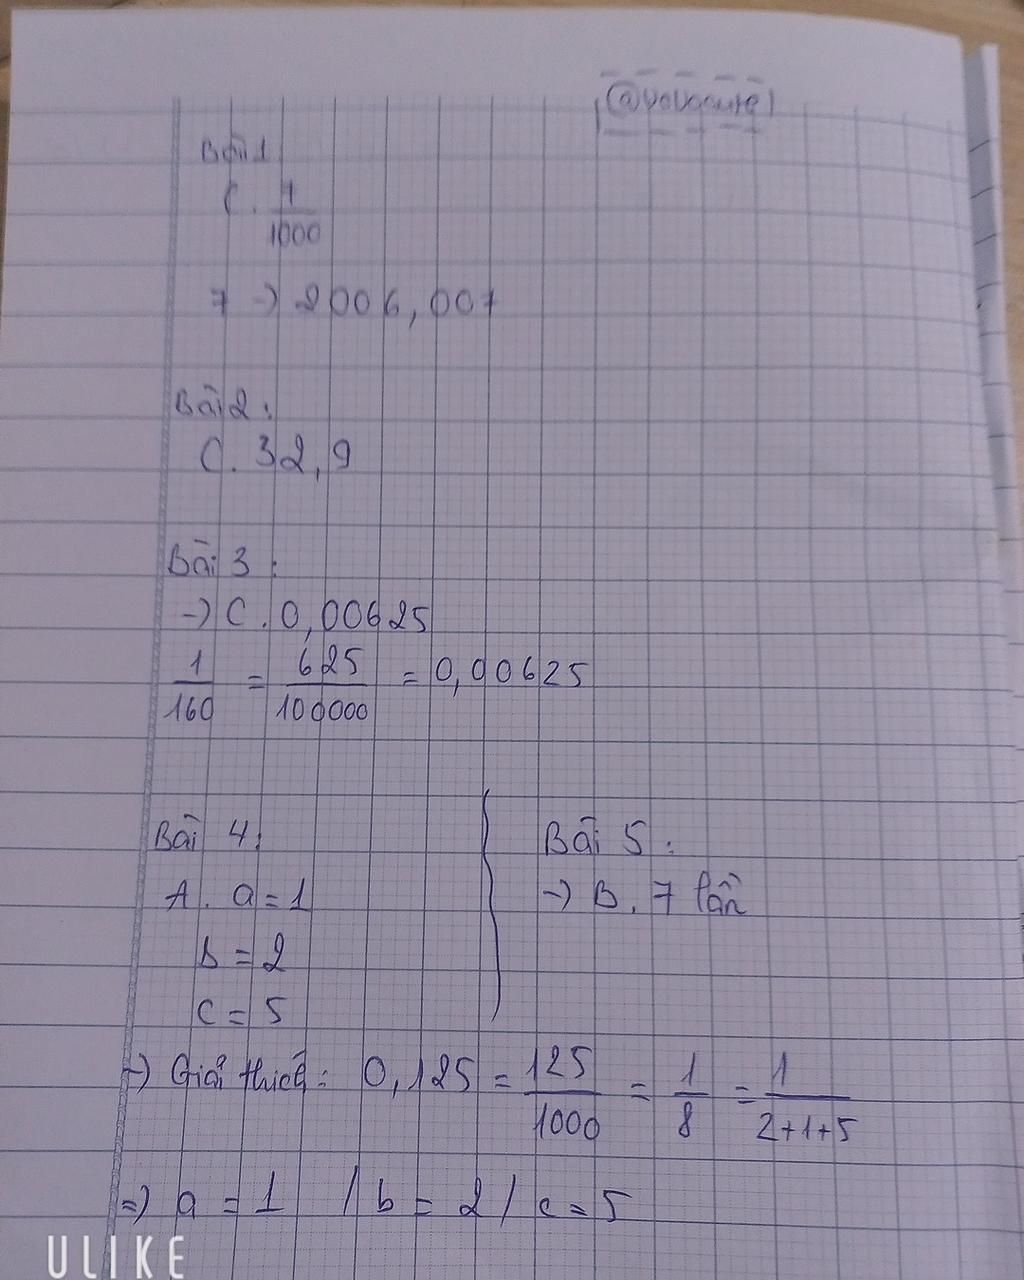 @vovocute
Bài 1
C. 1/1000
7 → 2006,007
Bài 2:
C. 32,9
Bài 3:
→ C. 0,00625
1/160 = 625/100000 = 0,00625
Bài 4:
A. a = 1
b = 2
c = 5
Bài 5:
→ B. 7 lần
→ Giải thích: 0,125 = 125/1000 = 1/8 = 1/2+1+5
⇒ a = 1 / b = 2 / c = 5
ULIKE